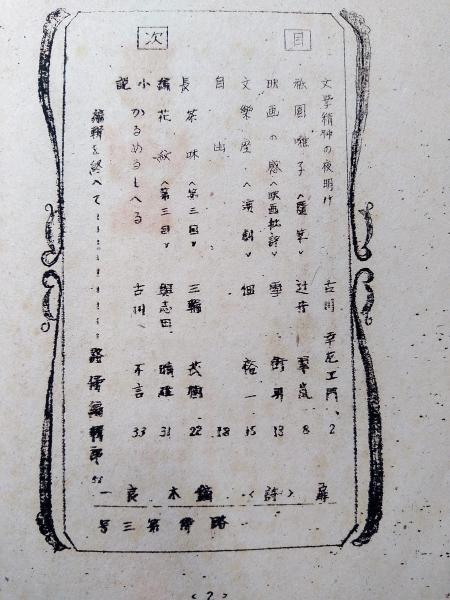 目次
文学精神の夜明け 古川 幸左エ門、 2
祇園囃子 〈随筆〉 辻井 翠嵐 8
映画の感〈映画批評〉 13
文樂座〈演劇〉 佃 裕一 15
自由 18
長 茶味〈第三回〉 三輪 茂樹 22
編 花紋〈第三回〉 與志田 晴雄 31
小説 かるめるとへる 古川、不言 33
編輯を終へて 路傍編輯部
扉〈詩〉 鏑木良一
路傍第三号